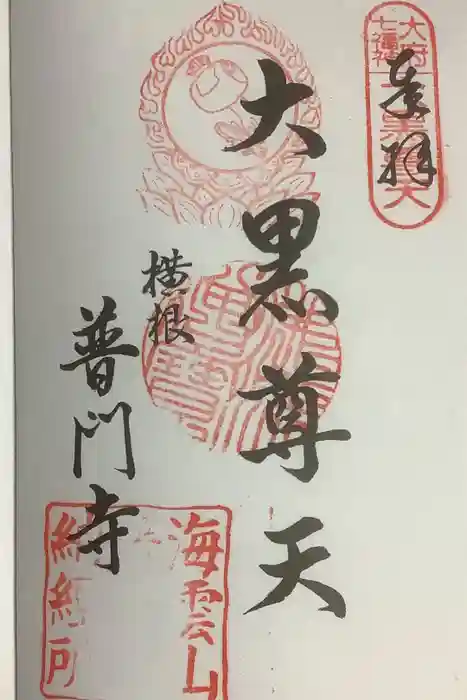 奉拝
大府
七福神
大黒尊天
横根
普門寺
海雲山
納経所